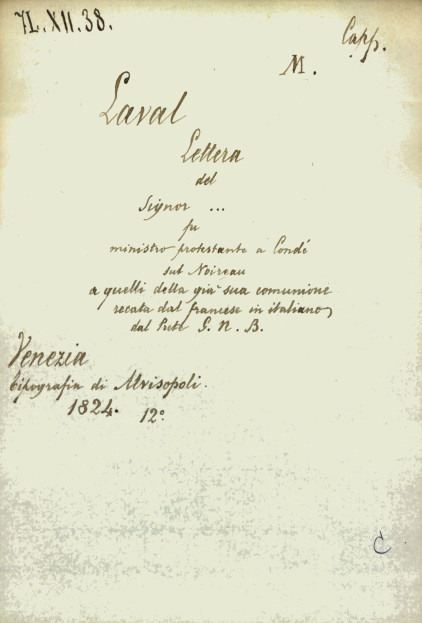 71.XII.38.
Capp.
M.
Laval
Lettera
del
Signor ...
fu
ministro protestante a Condé
sul Noireau
a quelli della già sua comunione
recata dal francese in italiano
dal Prete G. N. B.
Venezia
tipografia di Alvisopoli.
1824. 12°
C